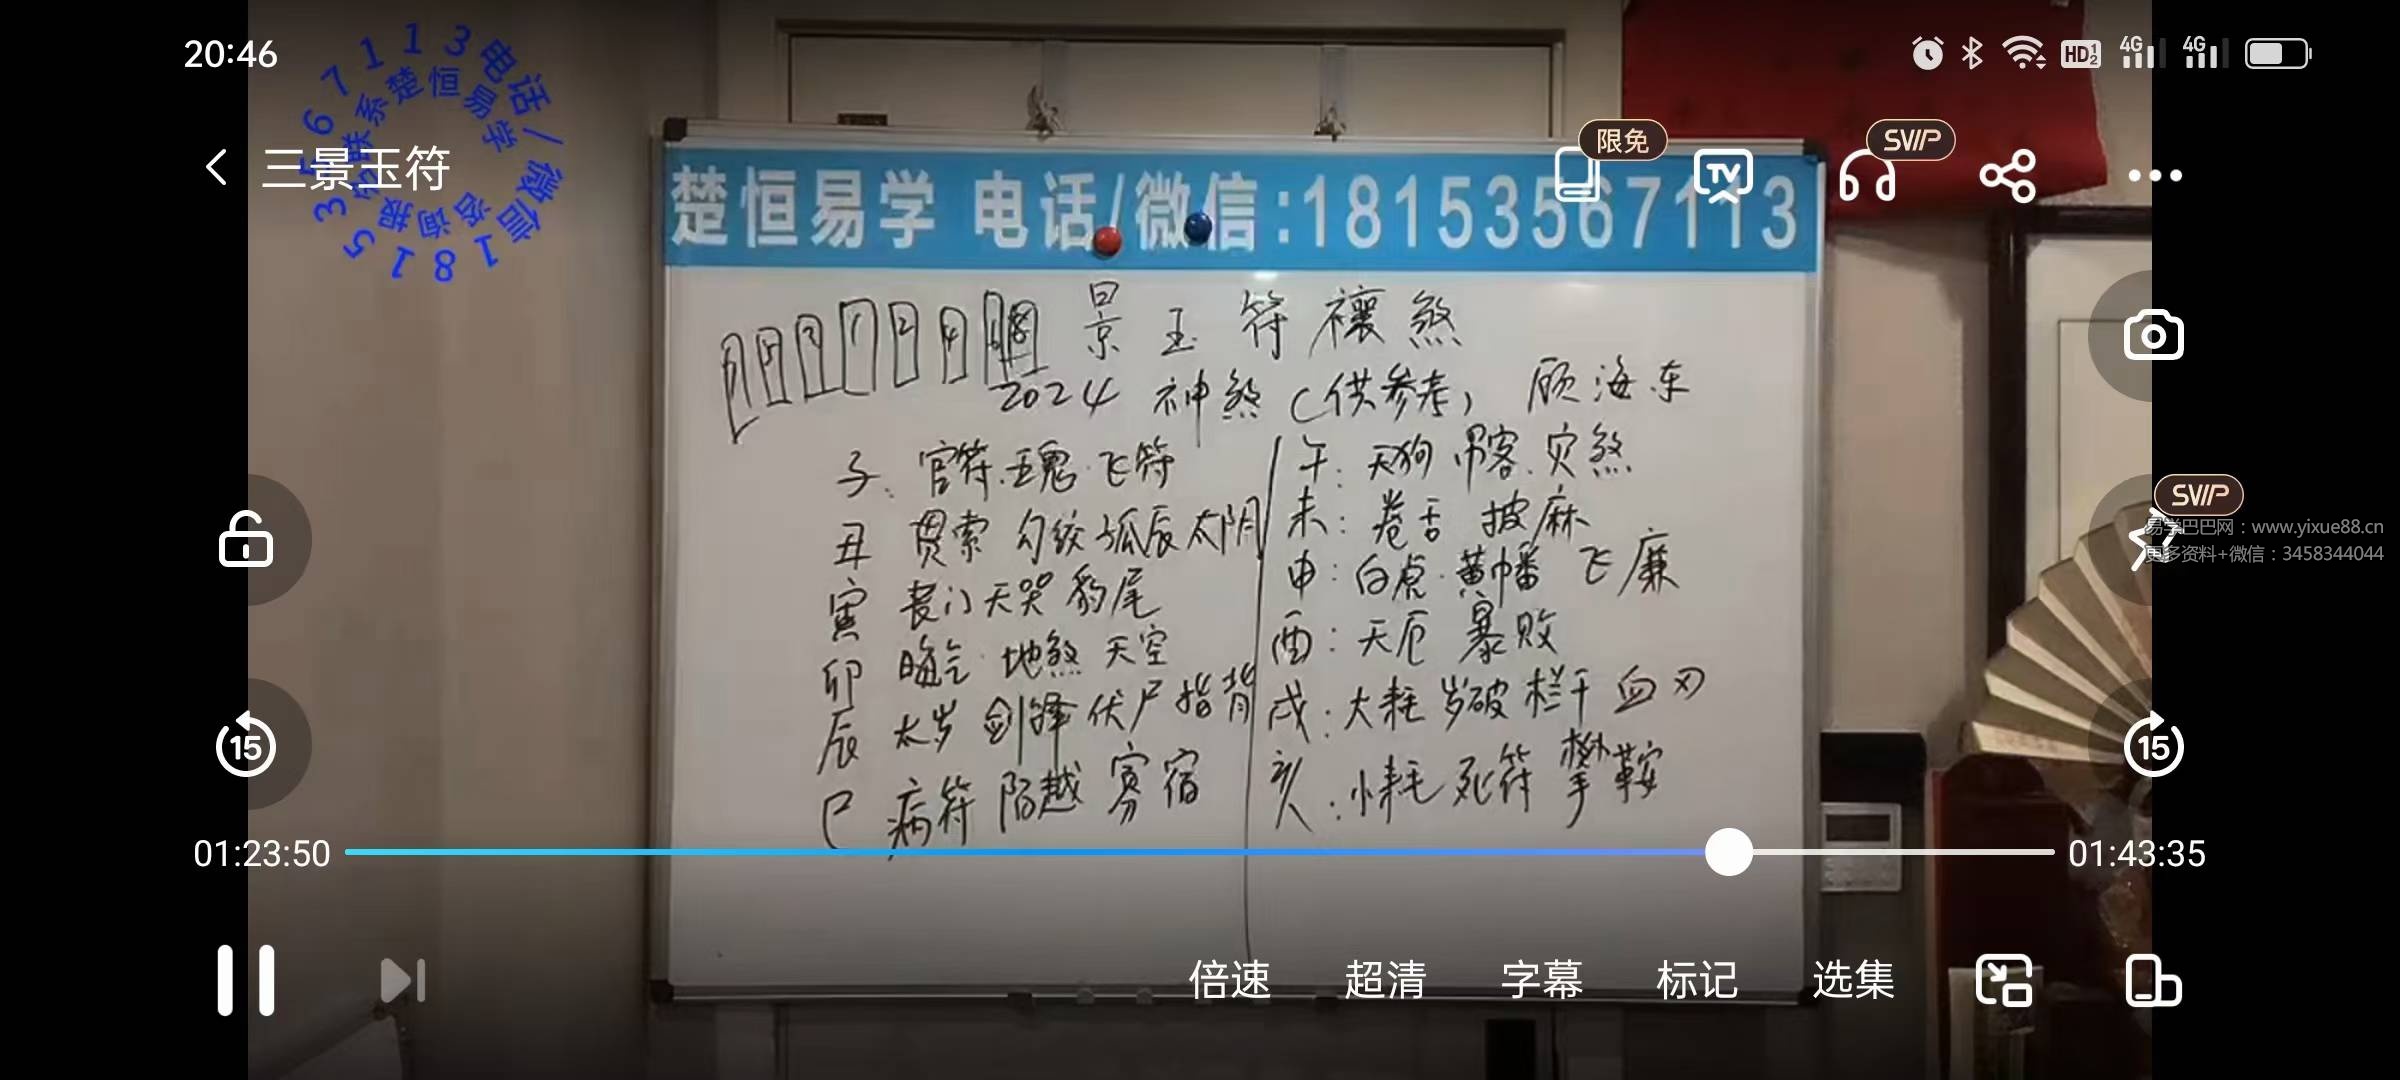 20:46
三景玉符
限免
SVIP
楚恒易学 电话/微信:18153567113
楚恒易学
电话/微信18153567113
景玉符禳煞
2024 神煞(供参考) 顾海东
子: 官符.五鬼.飞符
丑 贯索 勾绞 孤辰 太阴
寅 丧门 天哭 豹尾
卯 晦气.地煞 天空
辰 太岁 剑锋 伏尸 指背
巳 病符 陌越 寡宿
午: 天狗 吊客.灾煞
未: 卷舌 披麻
申: 白虎.黄幡 飞廉
酉: 天厄 暴败
戌: 大耗 岁破 栏干 血刃
亥: 小耗 死符 攀鞍
SVIP
易学巴巴网：www.yixue88.cn
更多资料+微信：3458344044
15
15
01:23:50
01:43:35
倍速 超清 字幕 标记 选集